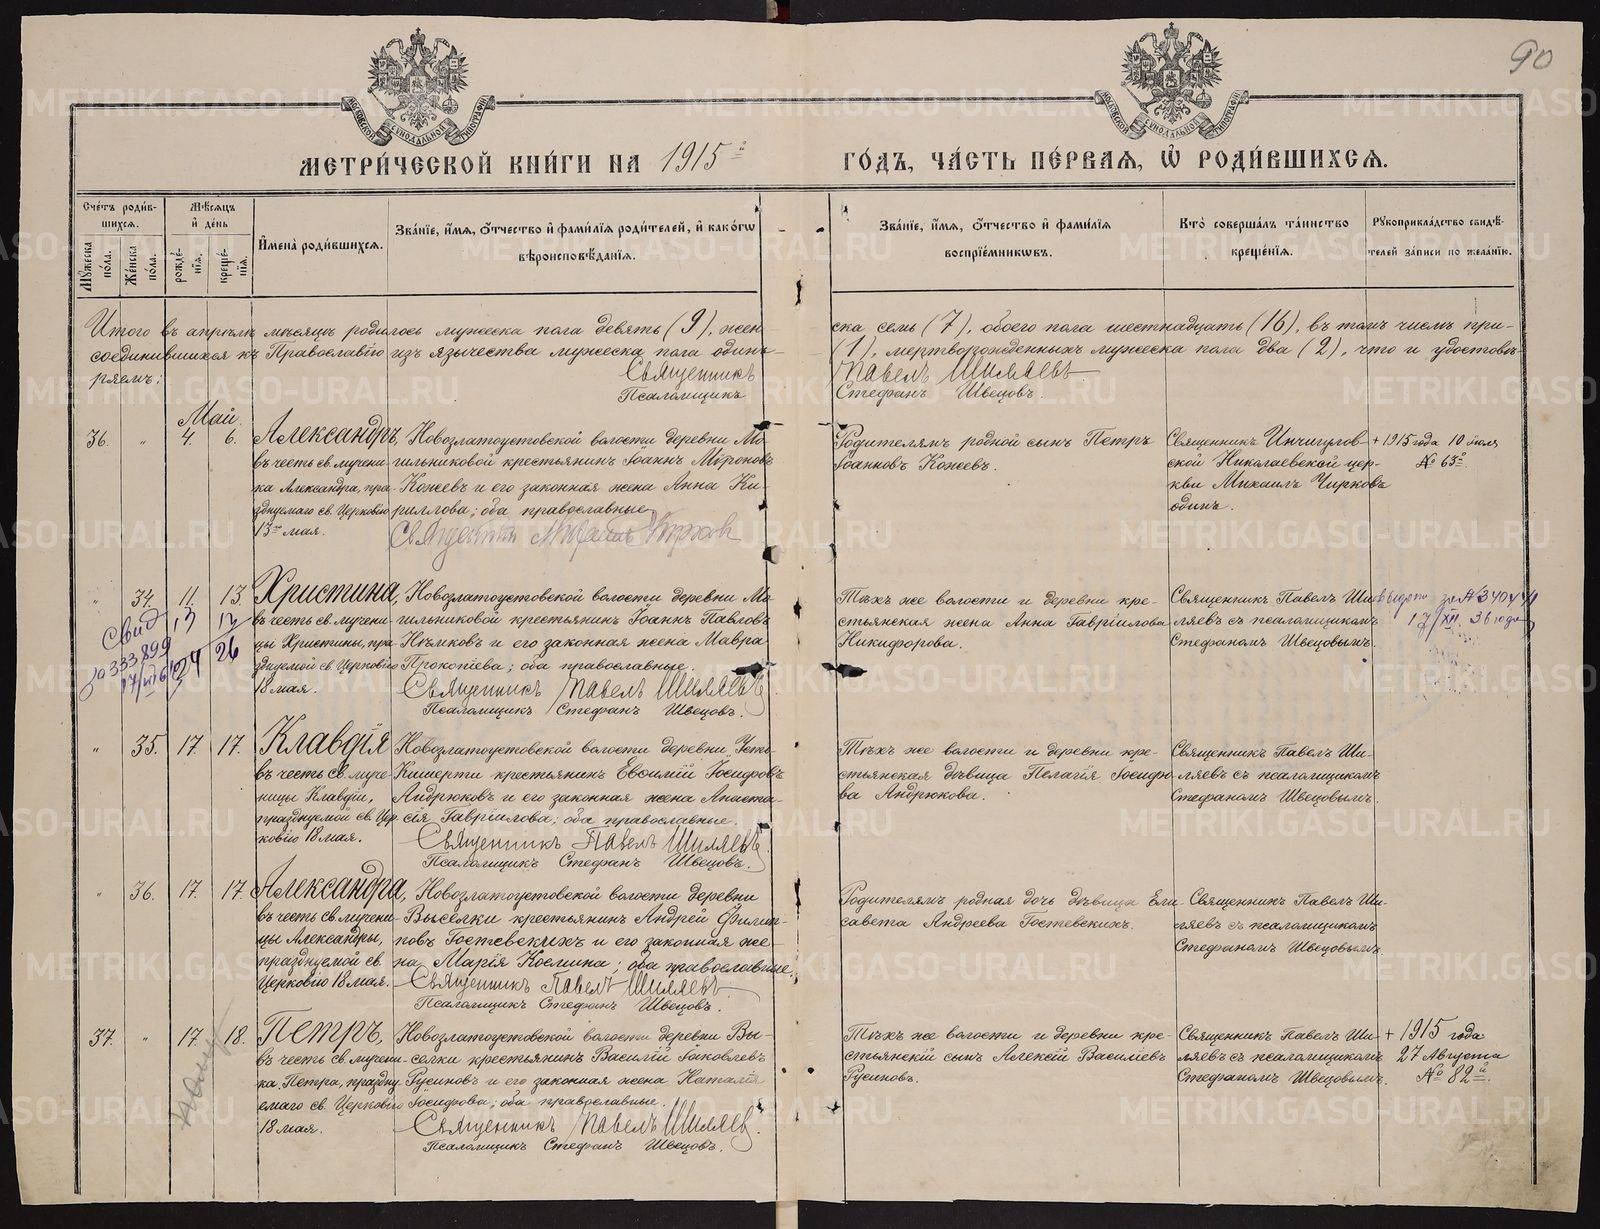 90
МЕТРИ́ЧЕСКОЙ КНИ́ГИ НА 1915й ГО́ДЪ, ЧА́СТЬ ПЕ́РВАѦ, Ѡ҆ РОДИ́ВШИХСѦ.
Сче́тъ роди́в-
шихся.
Мѣ́сяцъ
и҆ де́нь
Мꙋ́жеска по́ла.
Же́нска по́ла.
рожде́нїя.
креще́нїя.
И҆мена̀ роди́вшихся.
Зва́нїе, и҆́мя, ѻ҆́тчество и҆ фами́лїя роди́телей, и҆ како́гѡ
вѣроисповѣ́данїя.
Зва́нїе, и҆́мя, ѻ҆́тчество и҆ фами́лїя
воспрїе́мникѡвъ.
Кто̀ соверша́лъ та́инство
креще́нїя.
Рꙋкоприкла́дство свидѣ́-
телей за́писи по жела́нїю.
Итого въ апрѣлѣ мѣсяцѣ родилось мужеска пола девять (9), жен-
ска семь (7), обоего пола шестнадцать (16), въ томъ числѣ при-
соединившихся къ Православію изъ язычества мужеска пола одинъ
(1), мертворожденныхъ мужеска пола два (2), что и удостовѣ-
ряемъ:
Священникъ Павелъ Шиляевъ
Псаломщикъ Стефанъ Швецовъ.
Май.
36. " 4. 6.
Александръ,
въ честь св. мучени-
ка Александра, пра-
зднуемаго св. Церковію
13го мая.
Новозлатоустовской волости деревни Мо-
гильниковой крестьянинъ Іоаннъ Мѵроновъ
Кожевъ и его законная жена Анна Ки-
риллова; оба православные.
Священникъ Михаилъ Чирковъ
Родителямъ родной сынъ Петръ
Іоанновъ Кожевъ.
Священникъ Инчигулов-
ской Николаевской цер-
кви Михаилъ Чирковъ
одинъ.
+ 1915 года 10 июля
№ 63й
" 34. 11. 13.
Свид
333899
13
13
24
26
Христина,
въ честь св. мучени-
цы Христины, пра-
зднуемой св. Церковію
18 мая.
Новозлатоустовской волости деревни Мо-
гильниковой крестьянинъ Іоаннъ Павловъ
Нѣмковъ и его законная жена Мавра
Прокопіева; оба православные.
Священникъ Павелъ Шиляевъ
Псаломщикъ Стефанъ Швецовъ.
Тѣхъ же волости и деревни кре-
стьянская жена Анна Гавріилова
Никифорова.
Священникъ Павелъ Ши-
ляевъ съ псаломщикомъ
Стефаномъ Швецовымъ.
17/XII 36 года
" 35. 17. 17.
Клавдія
въ честь св. муче-
ницы Клавдіи,
празднуемой св. Цер-
ковію 18 мая.
Новозлатоустовской волости деревни Усть-
Кишерти крестьянинъ Евѳимій Іосифовъ
Андрюковъ и его законная жена Анаста-
сія Гавріилова; оба православные.
Священникъ Павелъ Шиляевъ
Псаломщикъ Стефанъ Швецовъ.
Тѣхъ же волости и деревни кре-
стьянская дѣвица Пелагія Іосифо-
ва Андрюкова.
Священникъ Павелъ Ши-
ляевъ съ псаломщикомъ
Стефаномъ Швецовымъ.
" 36. 17. 17.
Александра,
въ честь св. мучени-
цы Александры,
празднуемой св.
Церковію 18 мая.
Новозлатоустовской волости деревни
Выселки крестьянинъ Андрей Филип-
повъ Гостевскихъ и его законная же-
на Марія Космина; оба православные.
Священникъ Павелъ Шиляевъ
Псаломщикъ Стефанъ Швецовъ.
Родителямъ родная дочь дѣвица Ели-
савета Андреева Гостевскихъ.
Священникъ Павелъ Ши-
ляевъ съ псаломщикомъ
Стефаномъ Швецовымъ.
37. " 17. 18.
Петръ,
въ честь св. мучени-
ка Петра, праздну-
емаго св. Церковію
18 мая.
Новозлатоустовской волости деревни Вы-
селки крестьянинъ Василій Іаковлевъ
Русиновъ и его законная жена Наталія
Іосифова; оба православные.
Священникъ Павелъ Шиляевъ.
Псаломщикъ Стефанъ Швецовъ.
Тѣхъ же волости и деревни кре-
стьянскій сынъ Алексій Василіевъ
Русиновъ.
Священникъ Павелъ Ши-
ляевъ съ псаломщикомъ
Стефаномъ Швецовымъ.
+ 1915 года
27 Августа
№ 82й.
METRIKI.GASO-URAL.RU